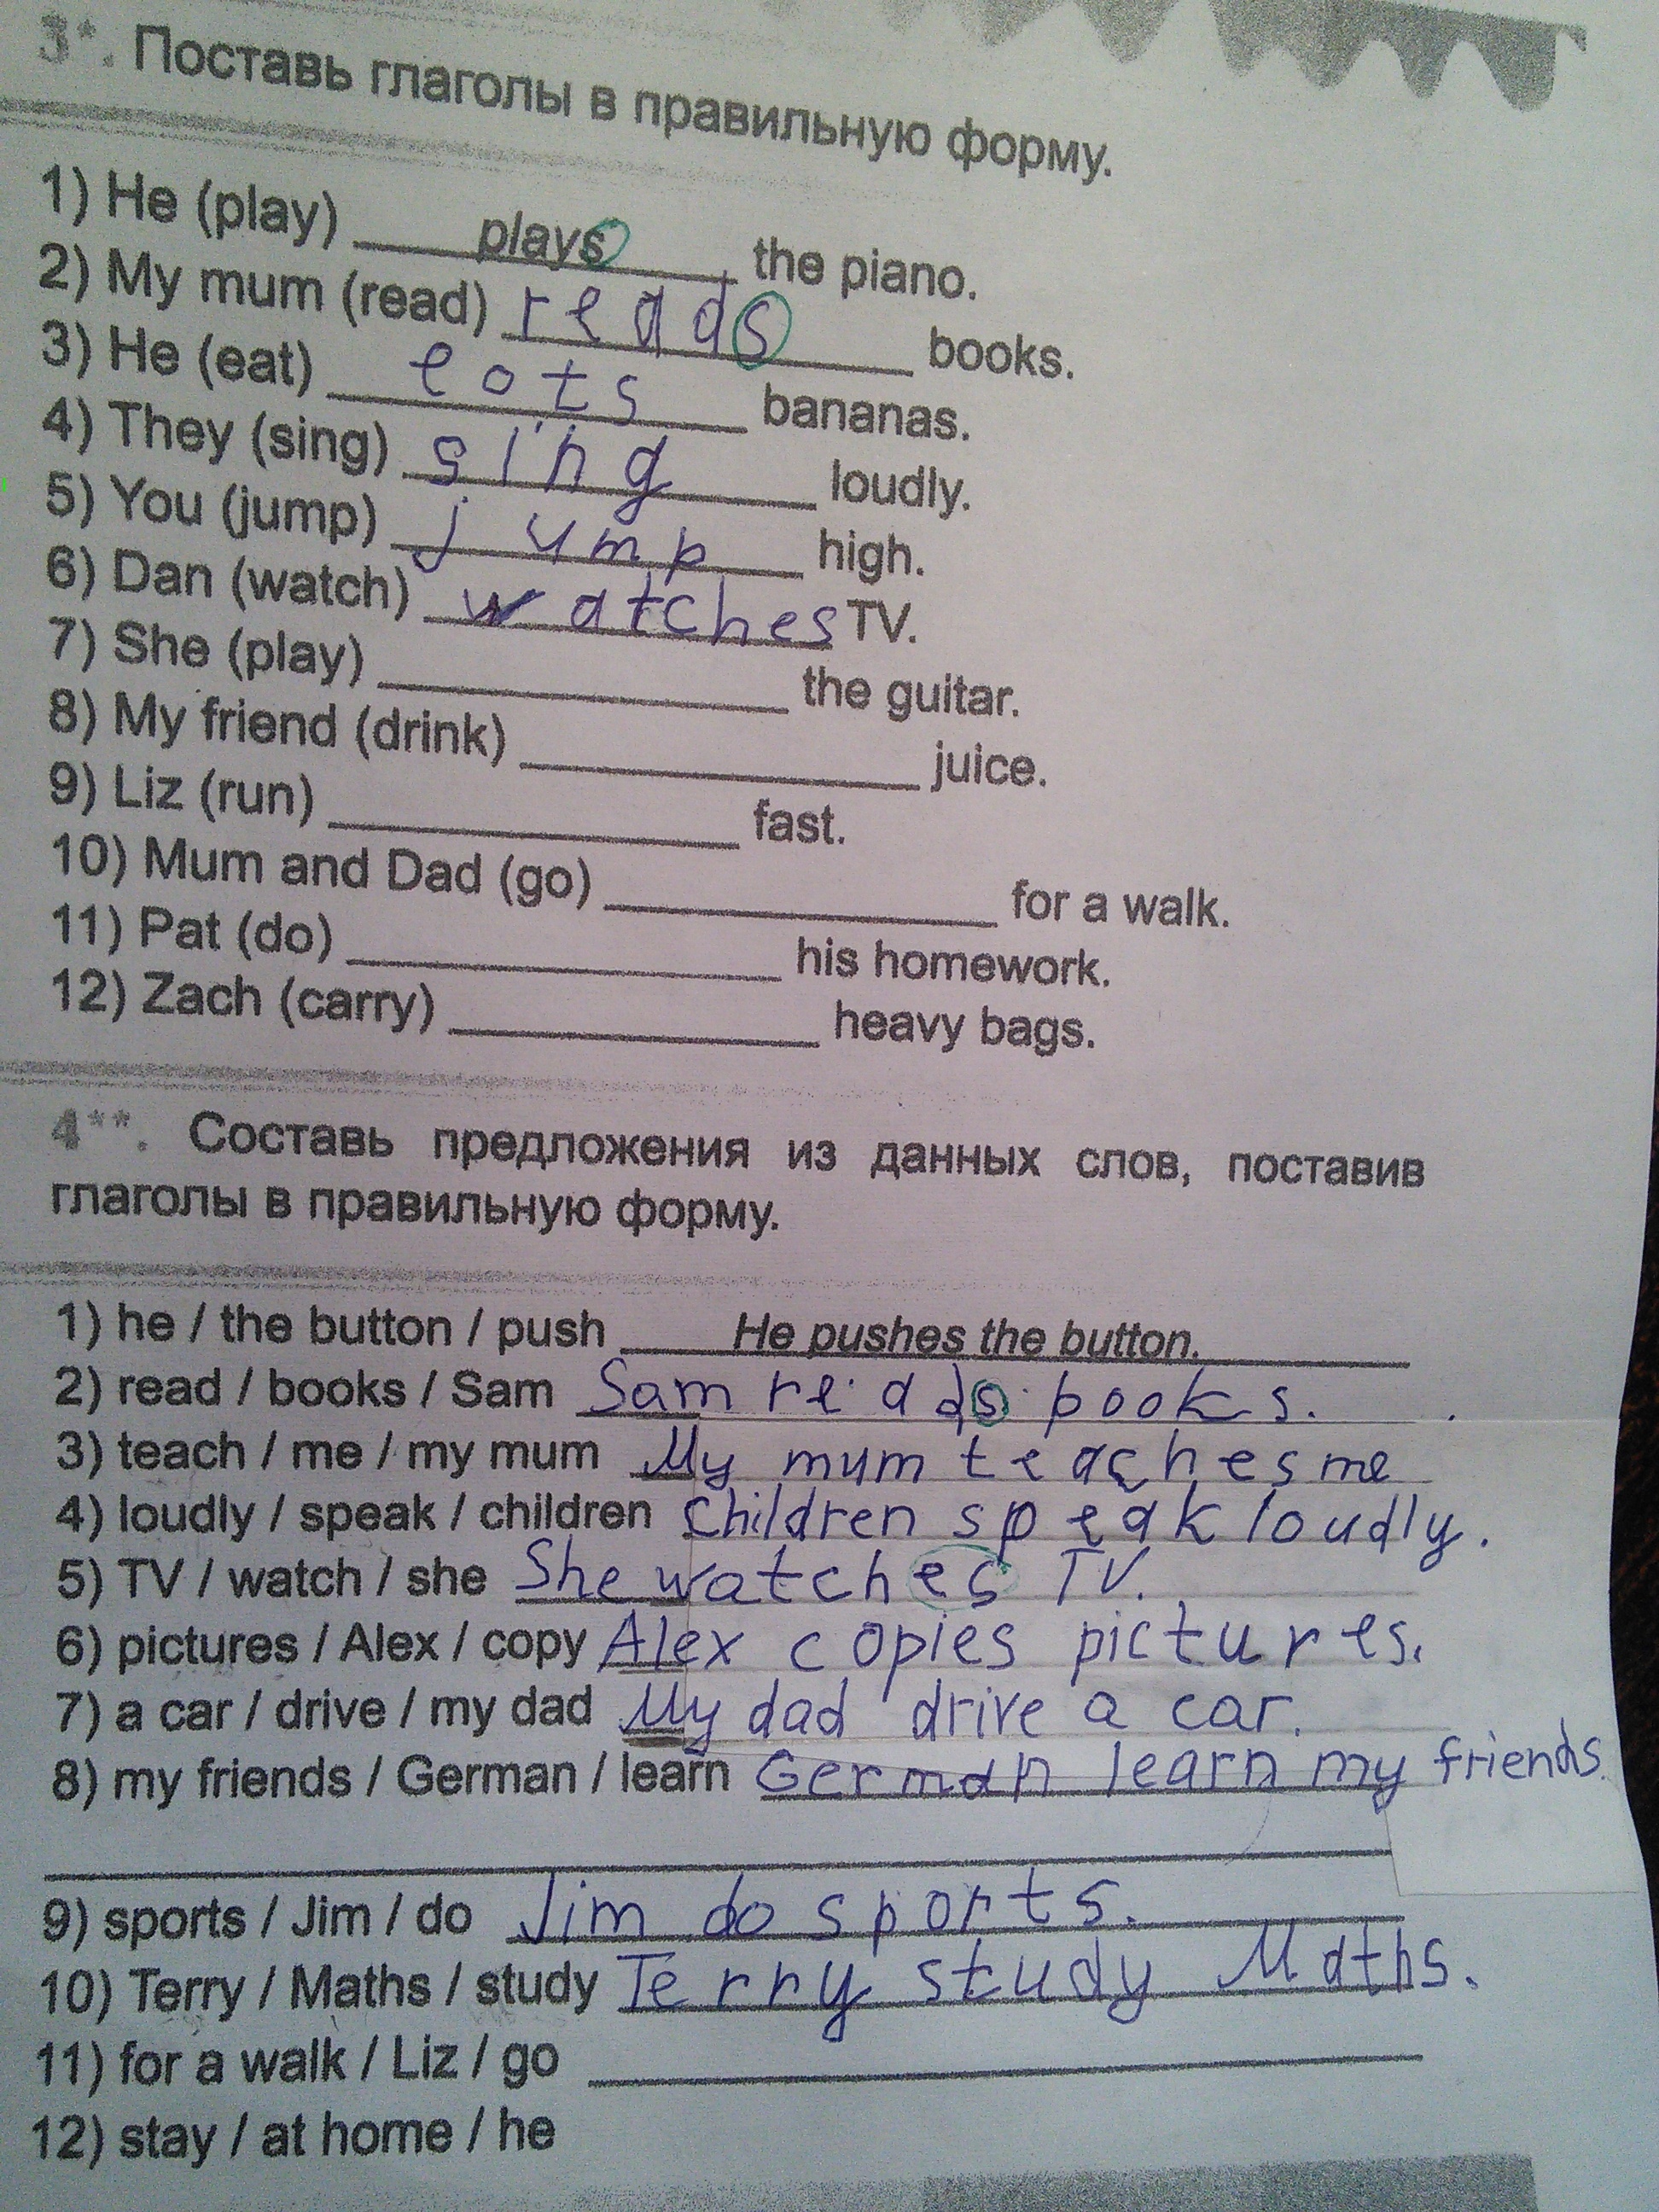 3*. Поставь глаголы в правильную форму.
1) He (play) plays the piano.
2) My mum (read) reads books.
3) He (eat) eots bananas.
4) They (sing) sing loudly.
5) You (jump) jump high.
6) Dan (watch) watches TV.
7) She (play) ____ the guitar.
8) My friend (drink) ____ juice.
9) Liz (run) ____ fast.
10) Mum and Dad (go) ____ for a walk.
11) Pat (do) ____ his homework.
12) Zach (carry) ____ heavy bags.
4**. Составь предложения из данных слов, поставив
глаголы в правильную форму.
1) he / the button / push He pushes the button.
2) read / books / Sam Sam reads books.
3) teach / me / my mum My mum teaches me
4) loudly / speak / children Children speak loudly.
5) TV / watch / she She watches TV.
6) pictures / Alex / copy Alex copies pictures.
7) a car / drive / my dad My dad drive a car.
8) my friends / German / learn German learn my friends.
9) sports / Jim / do Jim do sports.
10) Terry / Maths / study Terry study Maths.
11) for a walk / Liz / go
12) stay / at home / he